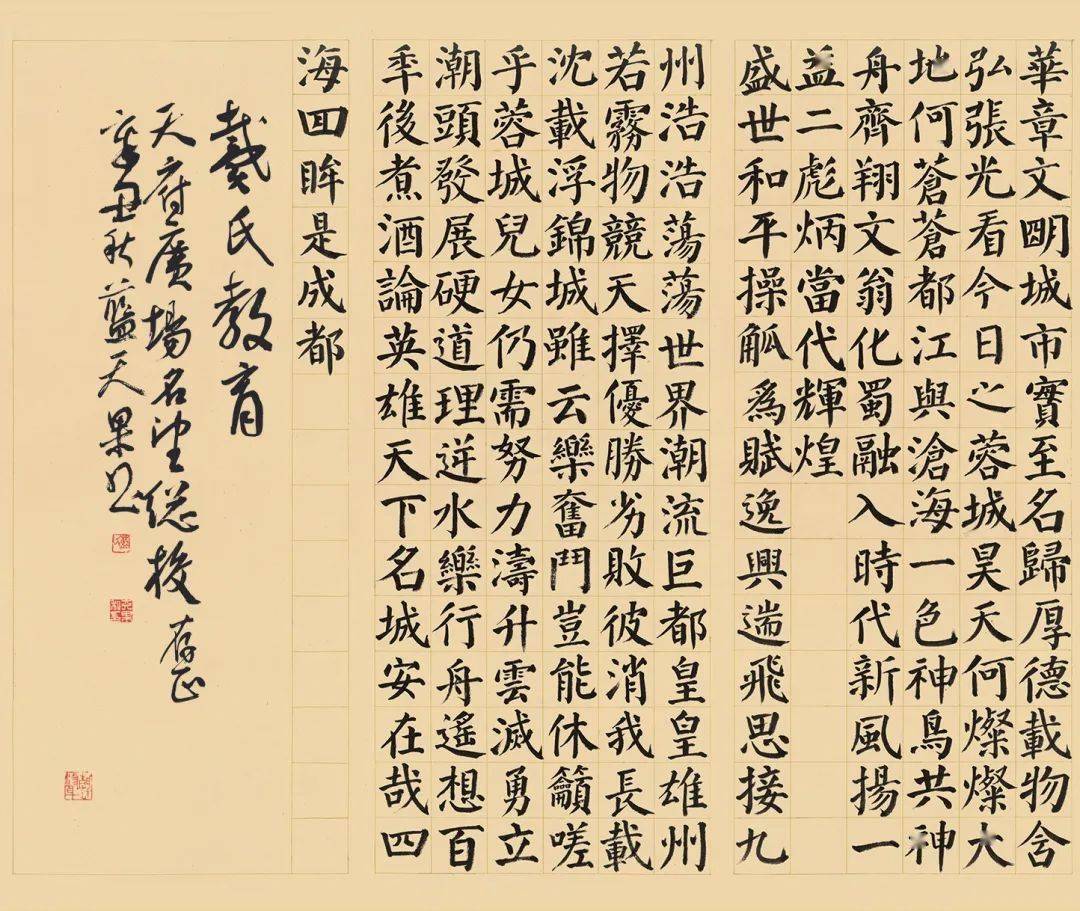 華章文明城市實至名歸厚德載物含
弘張光看今日之蓉城昊天何燦燦大
地何蒼蒼都江與滄海一色神鳥共神
舟齊翔文翁化蜀融入時代新風揚一
益二彪炳當代輝煌
盛世和平操觚爲賦逸興遄飛思接九
州浩浩蕩蕩世界潮流巨都皇皇雄州
若霧物競天擇優勝劣敗彼消我長載
沈載浮錦城雖云樂奮鬥豈能休籲嗟
乎蓉城兒女仍需努力濤升雲滅勇立
潮頭發展硬道理逆水樂行舟遙想百
年後煮酒論英雄天下名城安在哉四
海回眸是成都
戴氏教育
天府廣場名望總校 存正
辛丑秋藍天果書